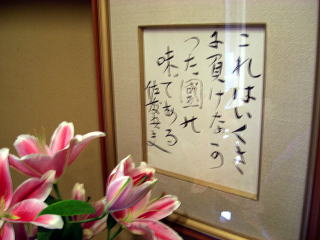 これはいくさ
に負けなか
つた國の
味である
佐藤春夫